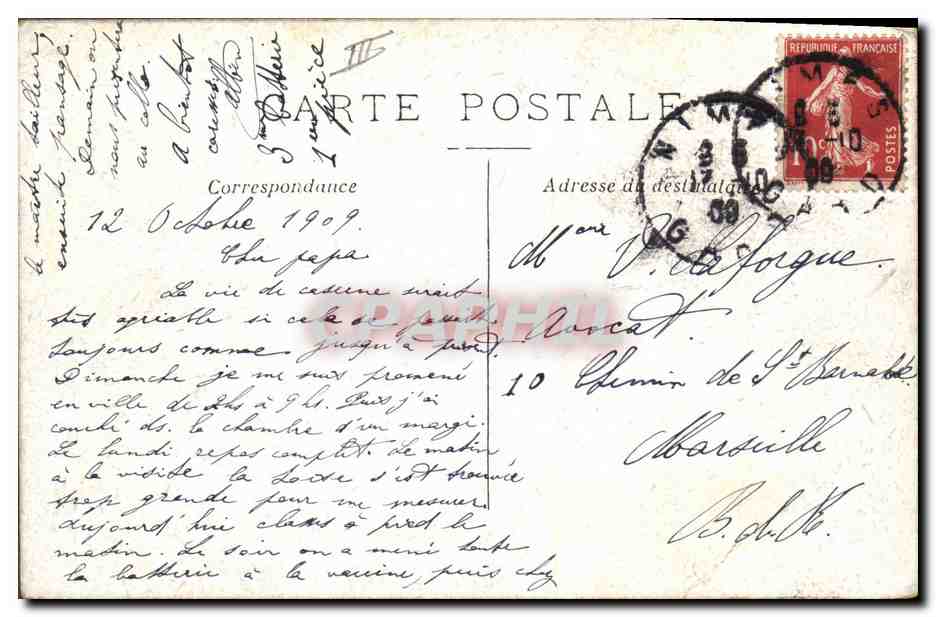 CARTE POSTALE
Correspondance
Adresse du destinataire
12 Octobre 1909.
Cher papa
La vie de caserne serait
très agréable si cela se passait
toujours comme jusqu'à présent.
Dimanche je me suis promené
en ville de 2hs à 9 hs. Puis j'ai
couché ds. la chambre d'un margi.
Le lundi repos complet. Le matin
à la visite la toise s'est trouvée
trop grande pour me mesurer.
Aujourd'hui classes à pied le
matin. Le soir on a mené toute
la batterie à la vaccine, puis chez
le maître tailleur,
ensuite pansage.
Demain on
nous
au
A bientôt
Albin
3me Batterie
1ère pièce
III
REPUBLIQUE FRANÇAISE
10c
POSTES
NIMES
GARD
V. Laforgue.
Avocat.
10 Chemin de St Barnabé.
Marseille
B. du R.
CPAPHIL